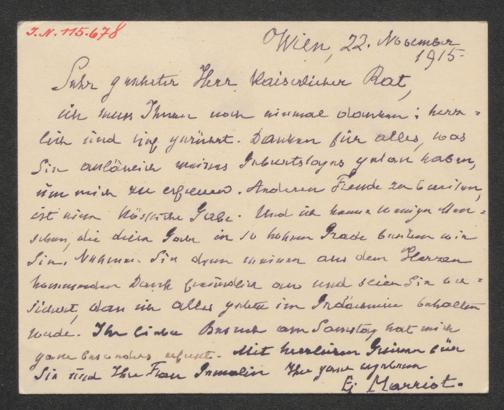 I.N. 115.678
Wien, 22. November
1915.
Sehr geehrter Herr Kaiserlicher Rat,
ich muss Ihnen noch einmal danken; herz-
lich und tief gerührt. Danken für alles, was
Sie anlässlich meines Geburtstages getan haben,
um mich zu erfreuen. Anderen Freude zu bereiten,
ist eine köstliche Gabe. Und ich kenne wenige Men-
schen, die diese Gabe in so hohem Grade besitzen wie
Sie. Nehmen Sie denn meinen aus dem Herzen
kommenden Dank freundlich an und seien Sie ver-
sichert, dass ich alles gütige im Gedächtnis behalten
werde. Ihr lieber Besuch am Samstag hat mich
ganz besonders erfreut. Mit herzlichen Grüssen für
Sie und Ihre Frau Gemalin Ihre ganz ergebene
E. Marriot.